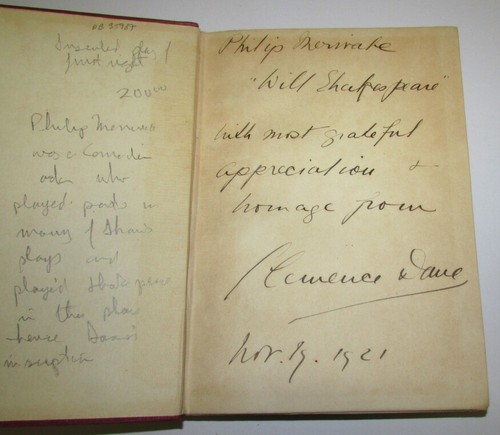 Inscribed day of
first night
200.00
Philip Merivale
was a Canadian
actor who
played parts in
many of Shaw's
plays and
played Shakespeare
in this play
hence Dane's
inscription
Philip Merivale
"Will Shakespeare"
with most grateful
appreciation &
homage from
Clemence Dane
Nov. 19. 1921